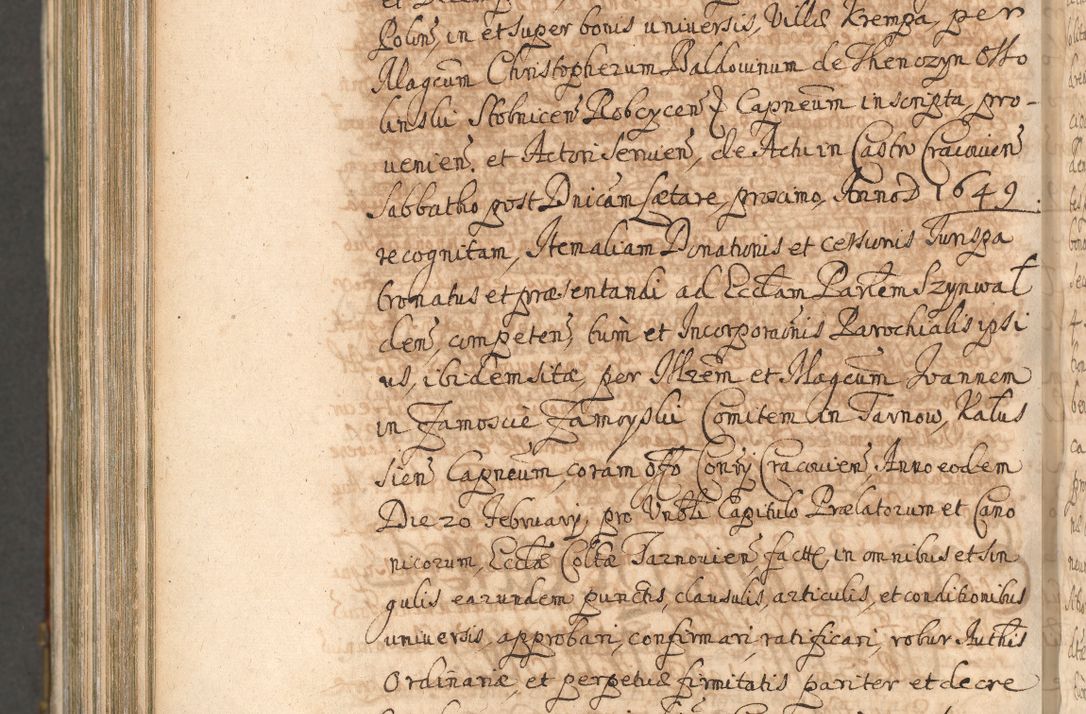 Polon, in et super bonis universis, Villæ Krempa, per
Magcum Christopherum Baldovinum de Thenczyn Osso
linski Stobnicen Robczycen & Capneum inscripta, pro-
venien. et Actori servien, de Actu in Castro Cracovien
Sabbatho post Dnicam Lætare, proximo, Anno D 1649.
recognitam, Item aliam Donationis et cessionis Jurispa
tronatus et præsentandi ad Ecclam Parlem Szynwal
den, competen, tum et Incorporaonis Parochialis ipsi
us, ibidem sitæ, per Illrem et Magcum Joannem
in Zamoscie Zamoyski Comitem in Tarnow, Kalus
sien Capneum, coram Offo Consy Cracovien, Anno eodem
Die 20 February, pro Vnbli Capitulo Prælatorum et Cano
nicorum, Ecclæ Collæ Tarnovien, factæ, in omnibus et sin
gulis earundem punctis, clausulis, articulis, et conditionibus
universis, approbari, confirmari, ratificari, robur Authis
Ordinariæ, et perpetuæ firmitatis pariter et decre